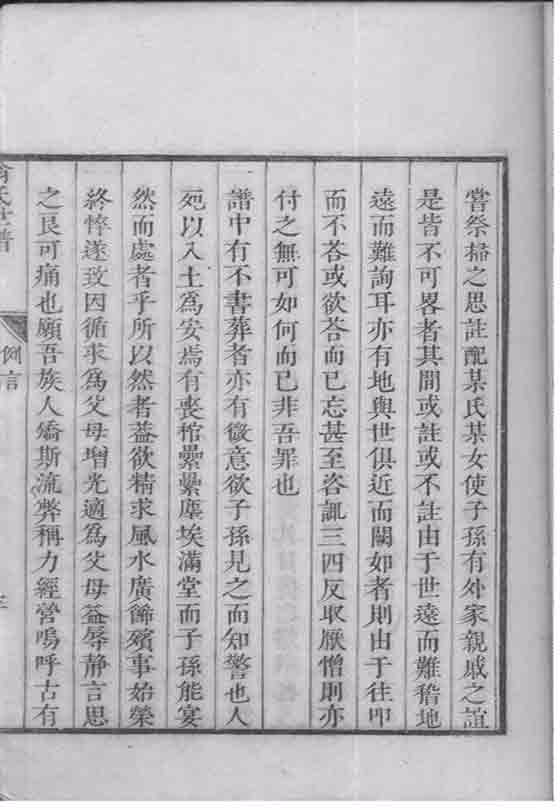 嘗祭埽之思註配某氏某女使子孫有外家親戚之誼
是皆不可畧者其間或註或不註由于世遠而難稽地
遠而難詢耳亦有地與世俱近而闕如者則由于往叩
而不荅或欲荅而已忘甚至咨諏三四反取厭憎則亦
付之無可如何而已非吾罪也
譜中有不書葬者亦有微意欲子孫見之而知警也人
死以入土爲安焉有喪棺纍纍塵埃滿堂而子孫能宴
然而處者乎所以然者益欲精求風水廣餙殯事始榮
終悴遂致因循求爲父母增光適爲父母益辱静言思
之良可痛也願吾族人矯斯流弊稱力經營嗚呼古有
氏世譜
例言